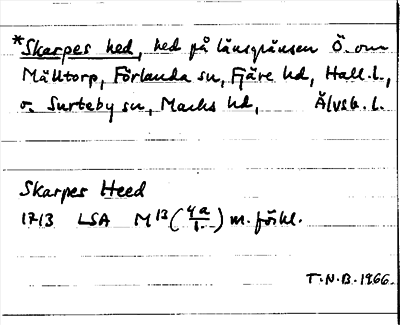 *Skarpes hed, hed på länsgränsen Ö. om
Mälltorp, Förlanda sn, Fjäre hd, Hall. l.,
o. Surteby sn, Marks hd, Älvsb. l.
Skarpes Heed
1713 LSA M 13 (4a/1.) m. förkl.
T.N.B. 1966.